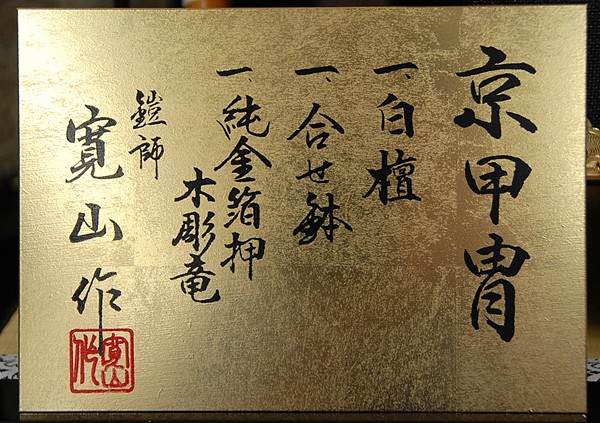 京甲冑
一、白檀
一、合せ鉢
一、純金箔押
木彫竜
鎧師
寛山作
寛山作